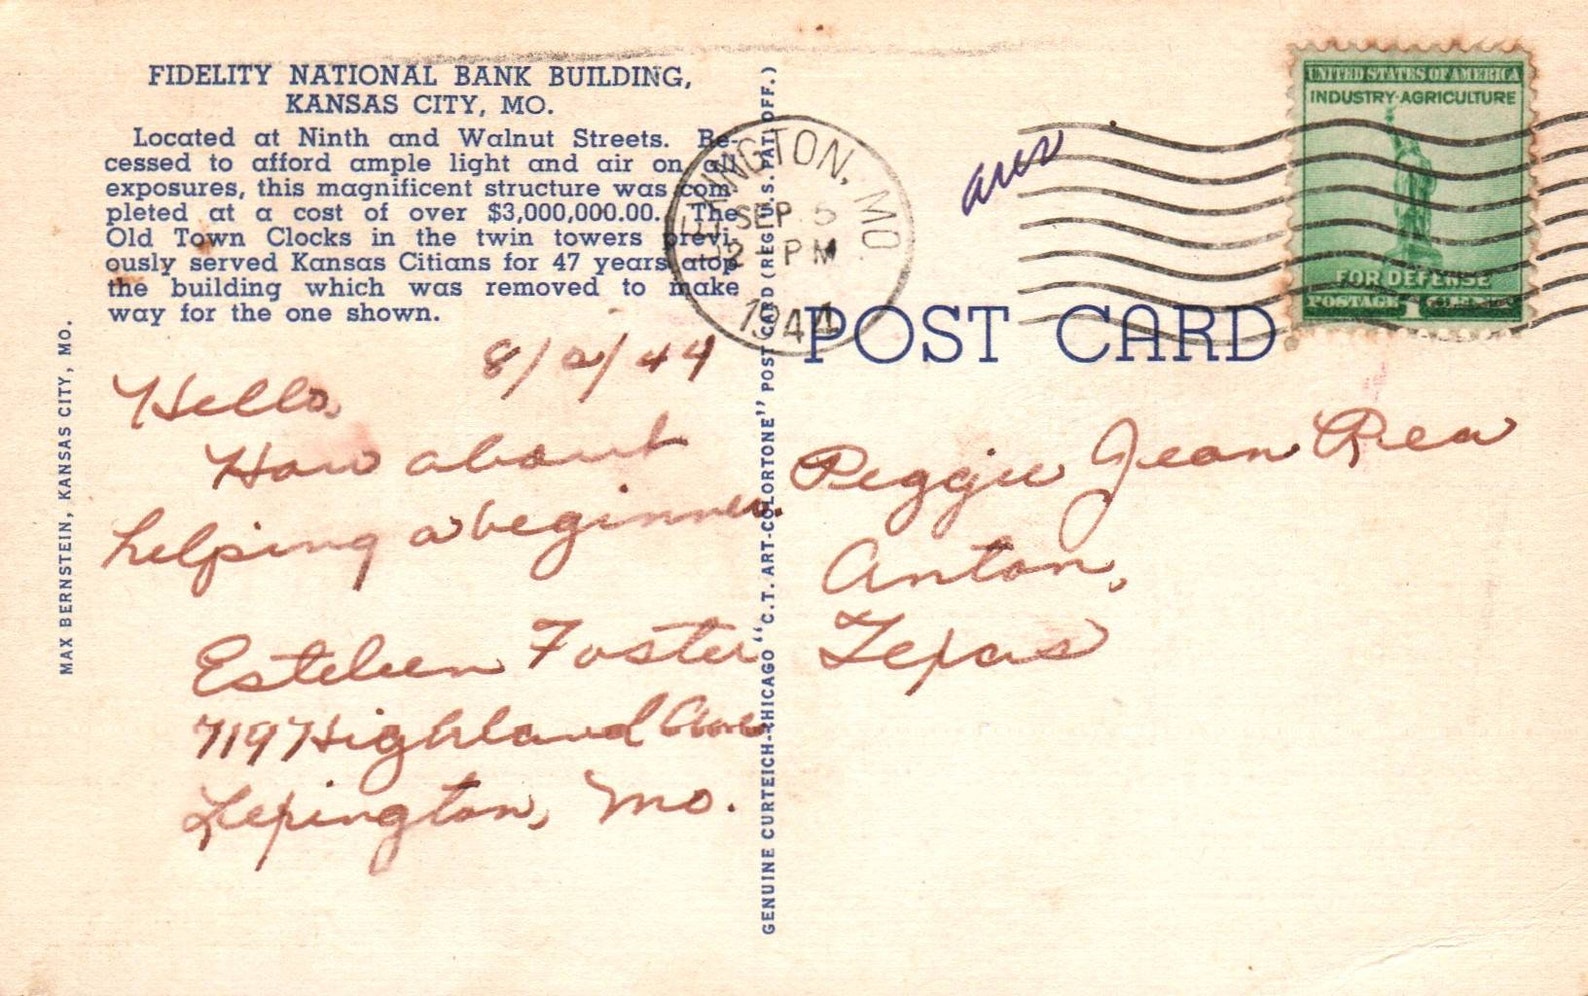 FIDELITY NATIONAL BANK BUILDING,
KANSAS CITY, MO.
Located at Ninth and Walnut Streets. Re-
cessed to afford ample light and air on all
exposures, this magnificent structure was com-
pleted at a cost of over $3,000,000.00. The
Old Town Clocks in the twin towers previ-
ously served Kansas Citians for 47 years atop
the building which was removed to make
way for the one shown.
8/2/44
Hello,
How about
helping a beginner.
Esteleen Foster
719 Highland Ave
Lexington, Mo.
MAX BERNSTEIN, KANSAS CITY, MO.
GENUINE CURTEICH-CHICAGO "C.T. ART-COLORTONE" POST CARD (REG. U.S. PAT. OFF.)
LEXINGTON, MO.
SEP 5
2 PM
1944
ans
UNITED STATES OF AMERICA
INDUSTRY·AGRICULTURE
FOR DEFENSE
POSTAGE 1 CENT
POST CARD
Peggie Jean Rea
Anton,
Texas